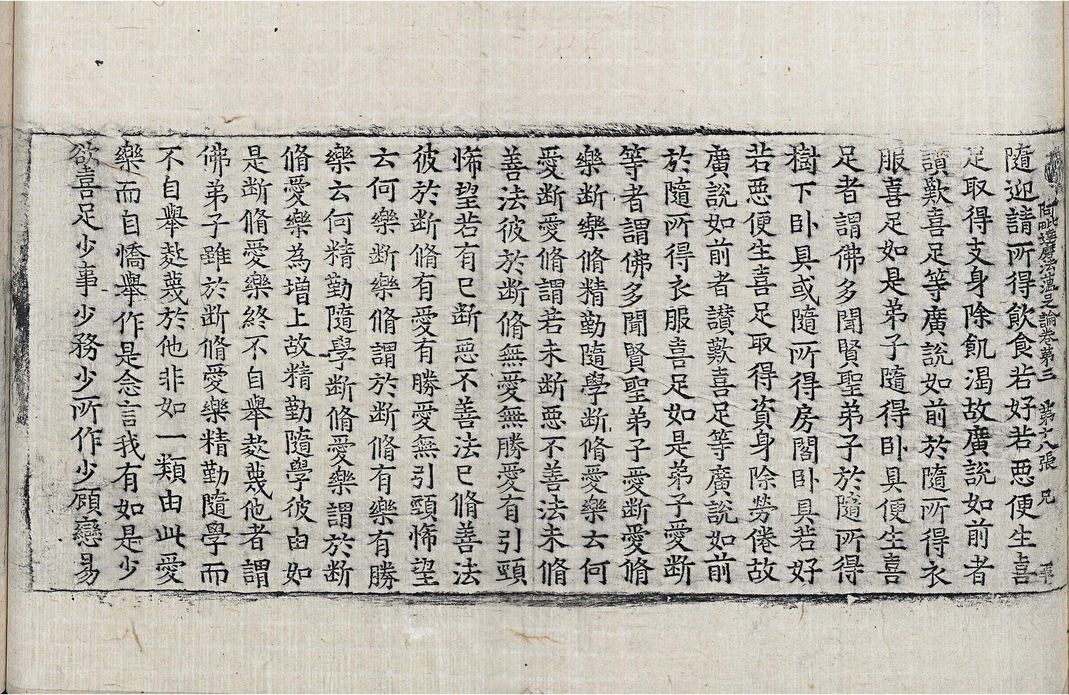 阿毗達磨法蘊足論卷第三 第十八張 兄
隨迎請所得飲食若好若惡便生喜
足取得支身除飢渴故廣說如前者
讚歎喜足等廣說如前於隨所得衣
服喜足如是弟子隨得卧具便生喜
足者謂佛多聞賢聖弟子於隨所得
樹下卧具或隨所得房閣卧具若好
若惡便生喜足取得資身除勞倦故
廣說如前者讃歎喜足等廣說如前
於隨所得衣服喜足如是弟子愛斷
等者謂佛多聞賢聖弟子愛斷愛脩
樂斷樂脩精勤隨學斷脩愛樂云何
愛斷愛脩謂若未斷惡不善法未脩
善法彼於斷脩無愛無勝愛有引頸
悕望若有已斷惡不善法已脩善法
彼於斷脩有愛有勝愛無引頸悕望
云何樂斷樂脩謂於斷脩有樂有勝
樂云何精勤隨學斷脩愛樂謂於斷
脩愛樂為增上故精勤隨學彼由如
是斷脩愛樂終不自舉㪍蔑他者謂
佛弟子雖於斷脩愛樂精勤隨學而
不自舉㪍蔑於他非如一類由此愛
樂而自憍舉作是念言我有如是少
欲喜足少事少務少所作少顧戀易